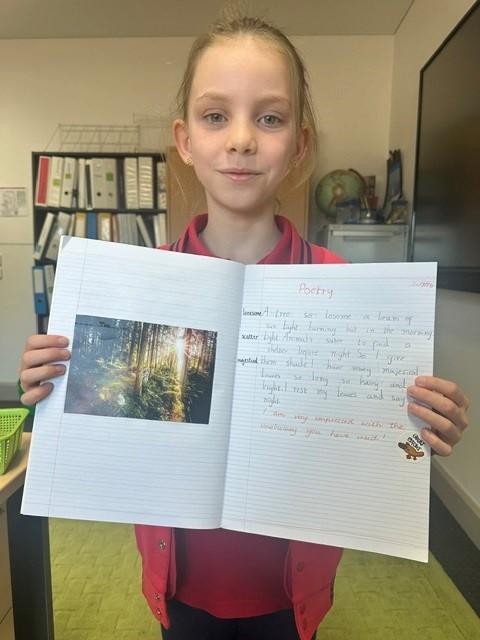 Poetry
lonesome A tree so losome a beam of
sun light burning but in the morning
scatter light. Animals sater to find a
shelter before night. So I give
majestical them shade! I have many majestical
leaves so long so hairy and
bright. I rest my leaves and say
night.
I am very impressed with the
vocabulary you have used!